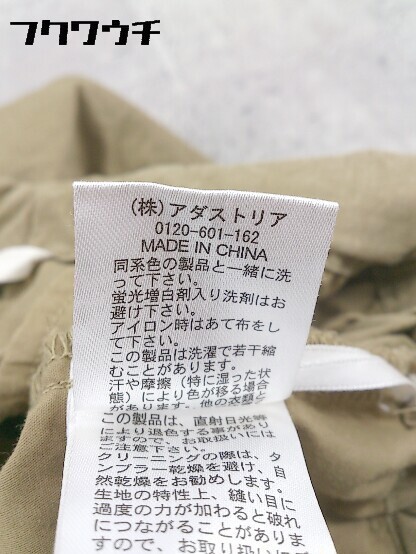 フクワウチ
(株)アダストリア
0120-601-162
MADE IN CHINA
同系色の製品と一緒に洗
って下さい。
蛍光増白剤入り洗剤はお
避け下さい。
アイロン時はあて布をし
て下さい。
この製品は洗濯で若干縮
むことがあります。
汗や摩擦（特に湿った状
態）により色が移る場合
があります。他の衣類と
この製品は、直射日光等
により退色する事があり
ますので、お取扱いには
ご注意下さい。
クリーニングの際は、タ
ンブラー乾燥を避け、自
然乾燥をお勧めします。
生地の特性上、縫い目に
過度の力が加わると破れ
につながることがありま
すので、お取り扱いに